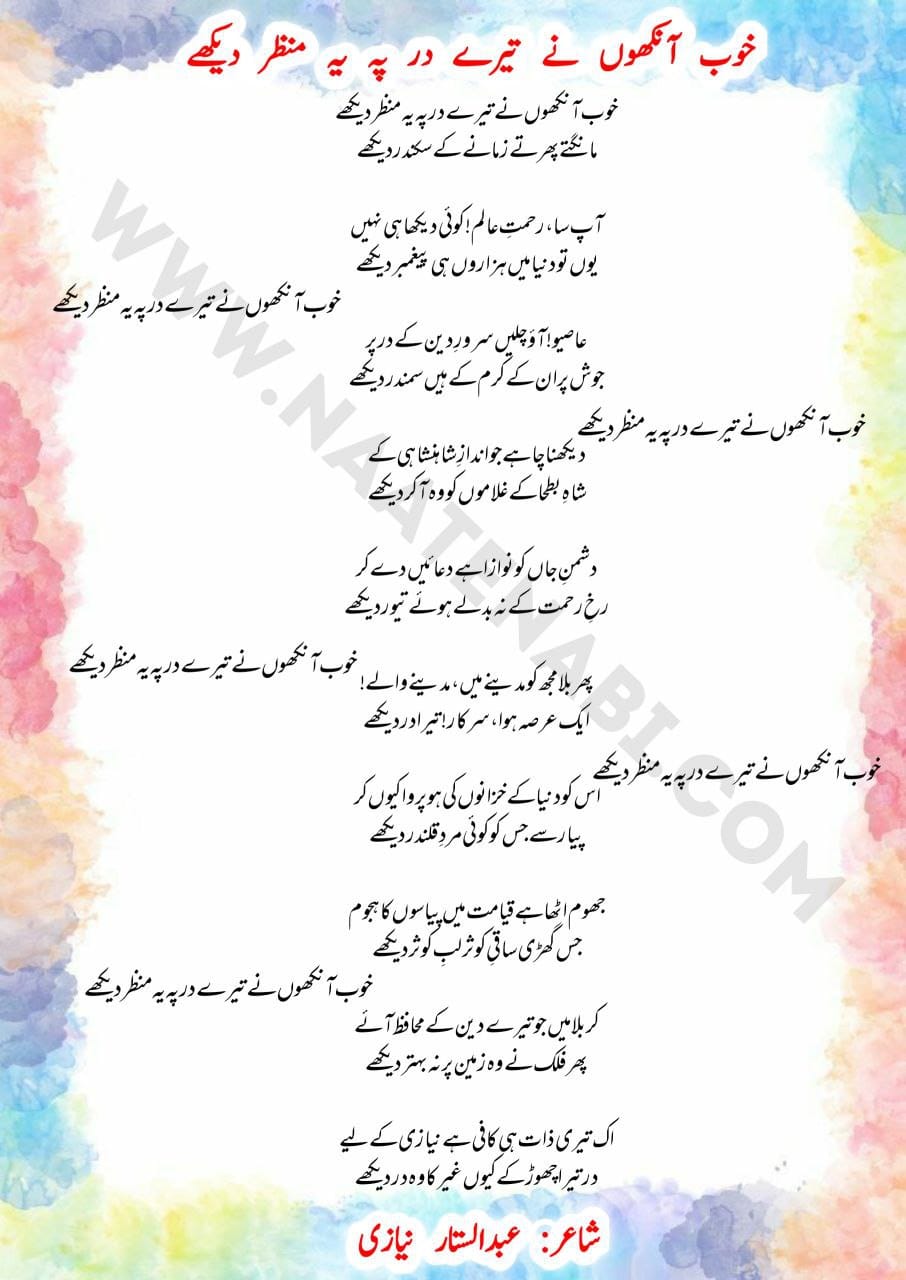 خوب آنکھوں نے تیرے در پہ یہ منظر دیکھے
خوب آنکھوں نے تیرے در پہ یہ منظر دیکھے
مانگتے پھرتے زمانے کے سکندر دیکھے
آپ سا، رحمتِ عالم! کوئی دیکھا ہی نہیں
یوں تو دنیا میں ہزاروں ہی پیغمبر دیکھے
خوب آنکھوں نے تیرے در پہ یہ منظر دیکھے
عاصیو! آؤ چلیں سرورِ دین کے در پر
جوش پر ان کے کرم کے ہیں سمندر دیکھے
خوب آنکھوں نے تیرے در پہ یہ منظر دیکھے
دیکھنا چاہے جو اندازِ شاہنشاہی کے
شاہِ بطحا کے غلاموں کو وہ آ کر دیکھے
دشمنِ جاں کو نوازا ہے دعائیں دے کر
رخِ رحمت کے نہ بدلے ہوئے تیور دیکھے
خوب آنکھوں نے تیرے در پہ یہ منظر دیکھے
پھر بلا مجھ کو مدینے میں، مدینے والے!
ایک عرصہ ہوا، سرکار! تیرا در دیکھے
خوب آنکھوں نے تیرے در پہ یہ منظر دیکھے
اس کو دنیا کے خزانوں کی ہو پروا کیوں کر
پیار سے جس کو کوئی مردِ قلندر دیکھے
جھوم اٹھا ہے قیامت میں پیاسوں کا ہجوم
جس گھڑی ساقیِ کوثر لبِ کوثر دیکھے
خوب آنکھوں نے تیرے در پہ یہ منظر دیکھے
کربلا میں جو تیرے دین کے محافظ آئے
پھر فلک نے وہ زمین پر نہ بہتر دیکھے
اک تیری ذات ہی کافی ہے نیازی کے لیے
در تیرا چھوڑ کے کیوں غیر کا وہ در دیکھے
شاعر: عبدالستار نیازی
WWW.NAATENABI.COM